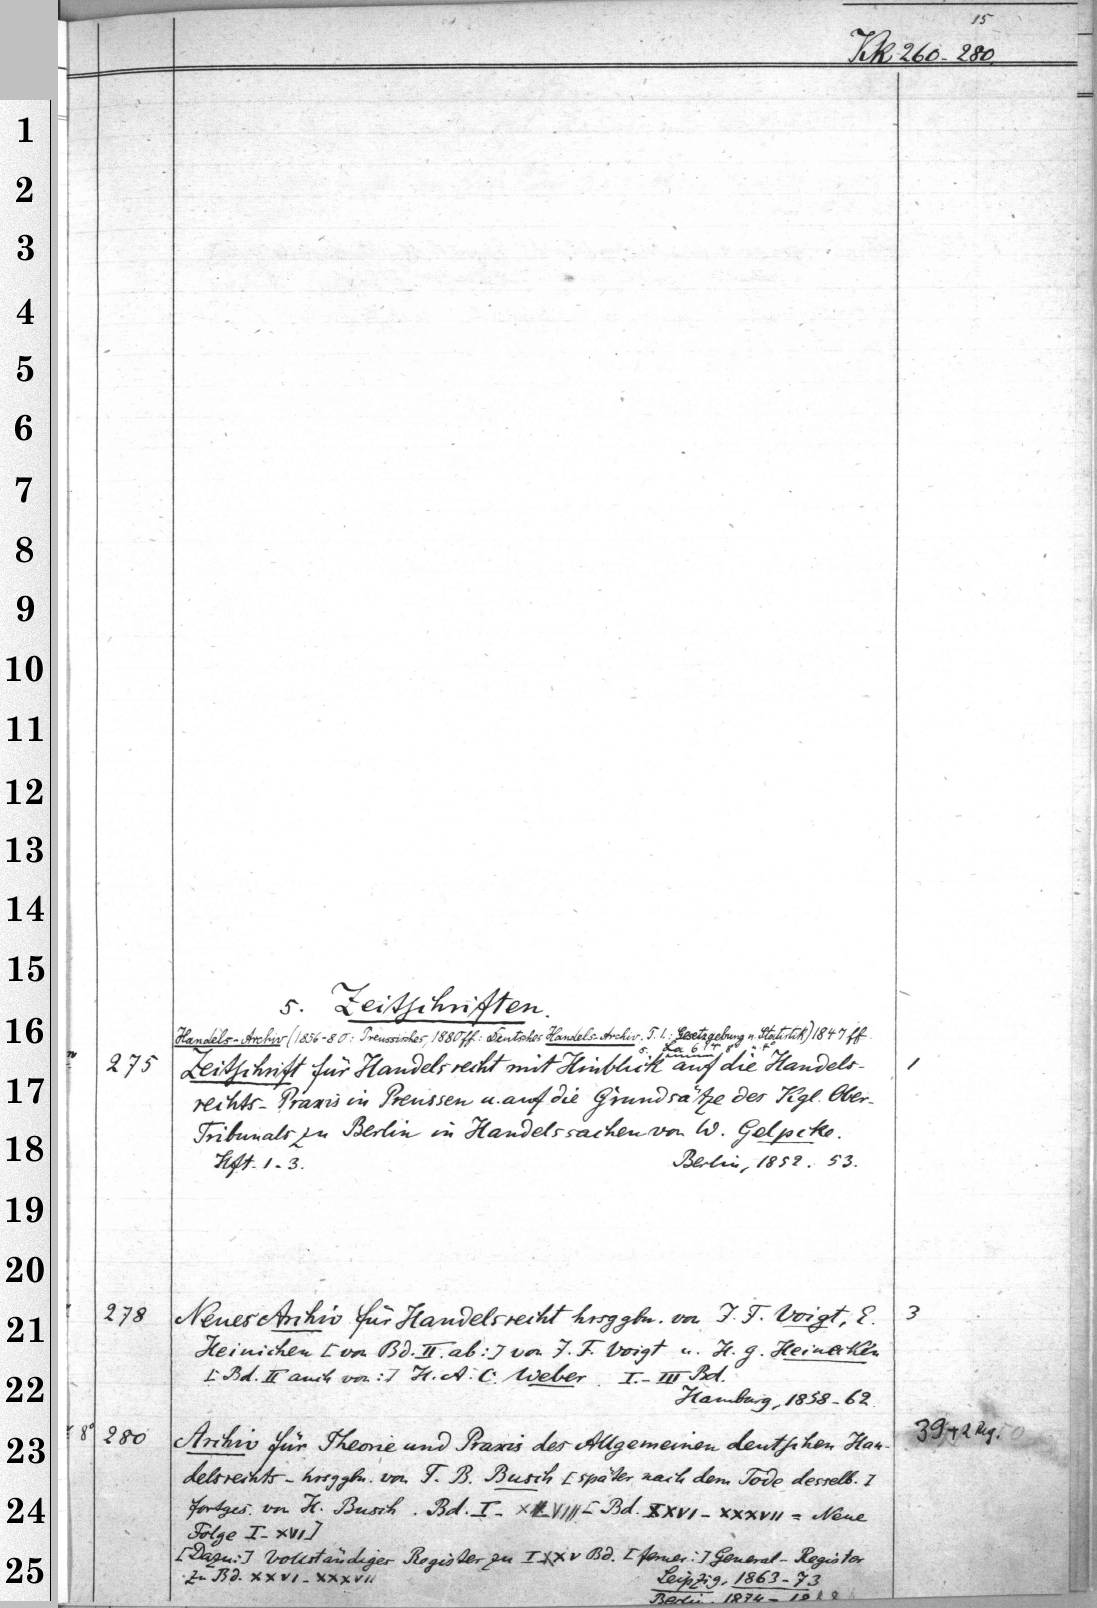 15
Kk 260-280
1
2
3
4
5
6
7
8
9
10
11
12
13
14
15
5. Zeitschriften.
16
Handels-Archiv (1856-80: Preussisches, 1880ff: Deutsches Handels-Archiv. T. 1.: Gesetzgebung u. Statistik) 1847 ff.
s. La 614
275 Zeitschrift für Handelsrecht mit Hinblick auf die Handels- 1
17
rechts-Praxis in Preussen u. auf die Grundsätze des Kgl. Ober-
Tribunals zu Berlin in Handelssachen von W. Gelpcke.
18
Hft. 1-3. Berlin, 1852. 53.
19
20
278 Neues Archiv für Handelsrecht hrsggbn. von J. F. Voigt, E. 3
21
Heinichen [von Bd. II ab:] von J. F. Voigt u. H. G. Heineken
[: Bd. II auch von:] H. A. C. Weber. I.-III Bd.
22
Hamburg, 1858-62.
8° 280 Archiv für Theorie und Praxis des Allgemeinen deutschen Han- 39 +2 Rg.
23
delsrechts - hrsggbn. von F. B. Busch [später nach dem Tode desselb.]
24
fortges. von H. Busch. Bd. I- [Bd. XXVI-XXXVII = Neue
Folge I-XVI]
[Dazu:] Vollständiges Register zu I-XXV Bd. [ferner:] General-Register
25
zu Bd. XXVI-XXXVII Leipzig, 1863-73
Berlin, 1874-